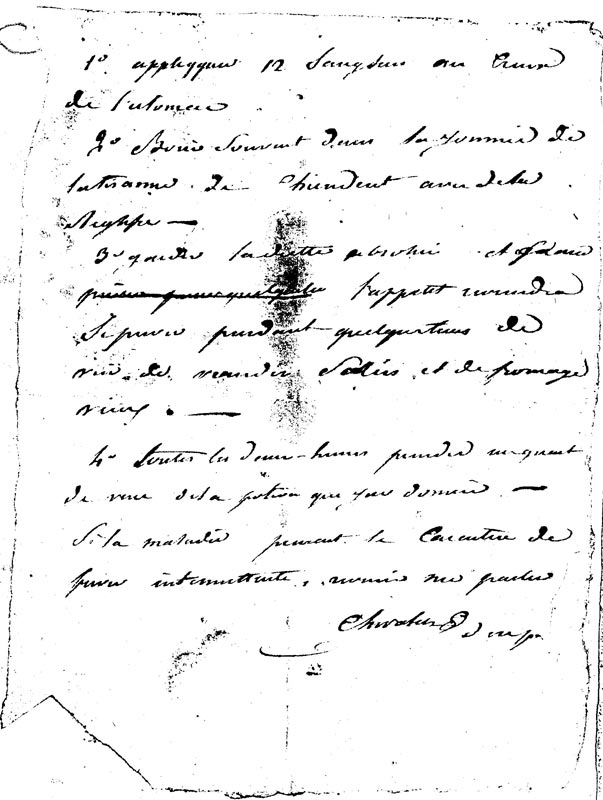 1° appliquer 12 Sangsues au Creux
de l'estomac
2° Boire Souvent dans la journée de
la tisanne de Chiendent avec de la
Réglisse —
3° garder la diette absolue et
l'appetit reviendra
Se priver pendant quelque tems de
vin de viandes Salées et de fromage
vieux. —
4° toutes les deux heures prendre un quart
de verre de la potion que j'ai donnée —
Si la maladie prenoit le Caractère de
fievre intermittente, revenir me parler